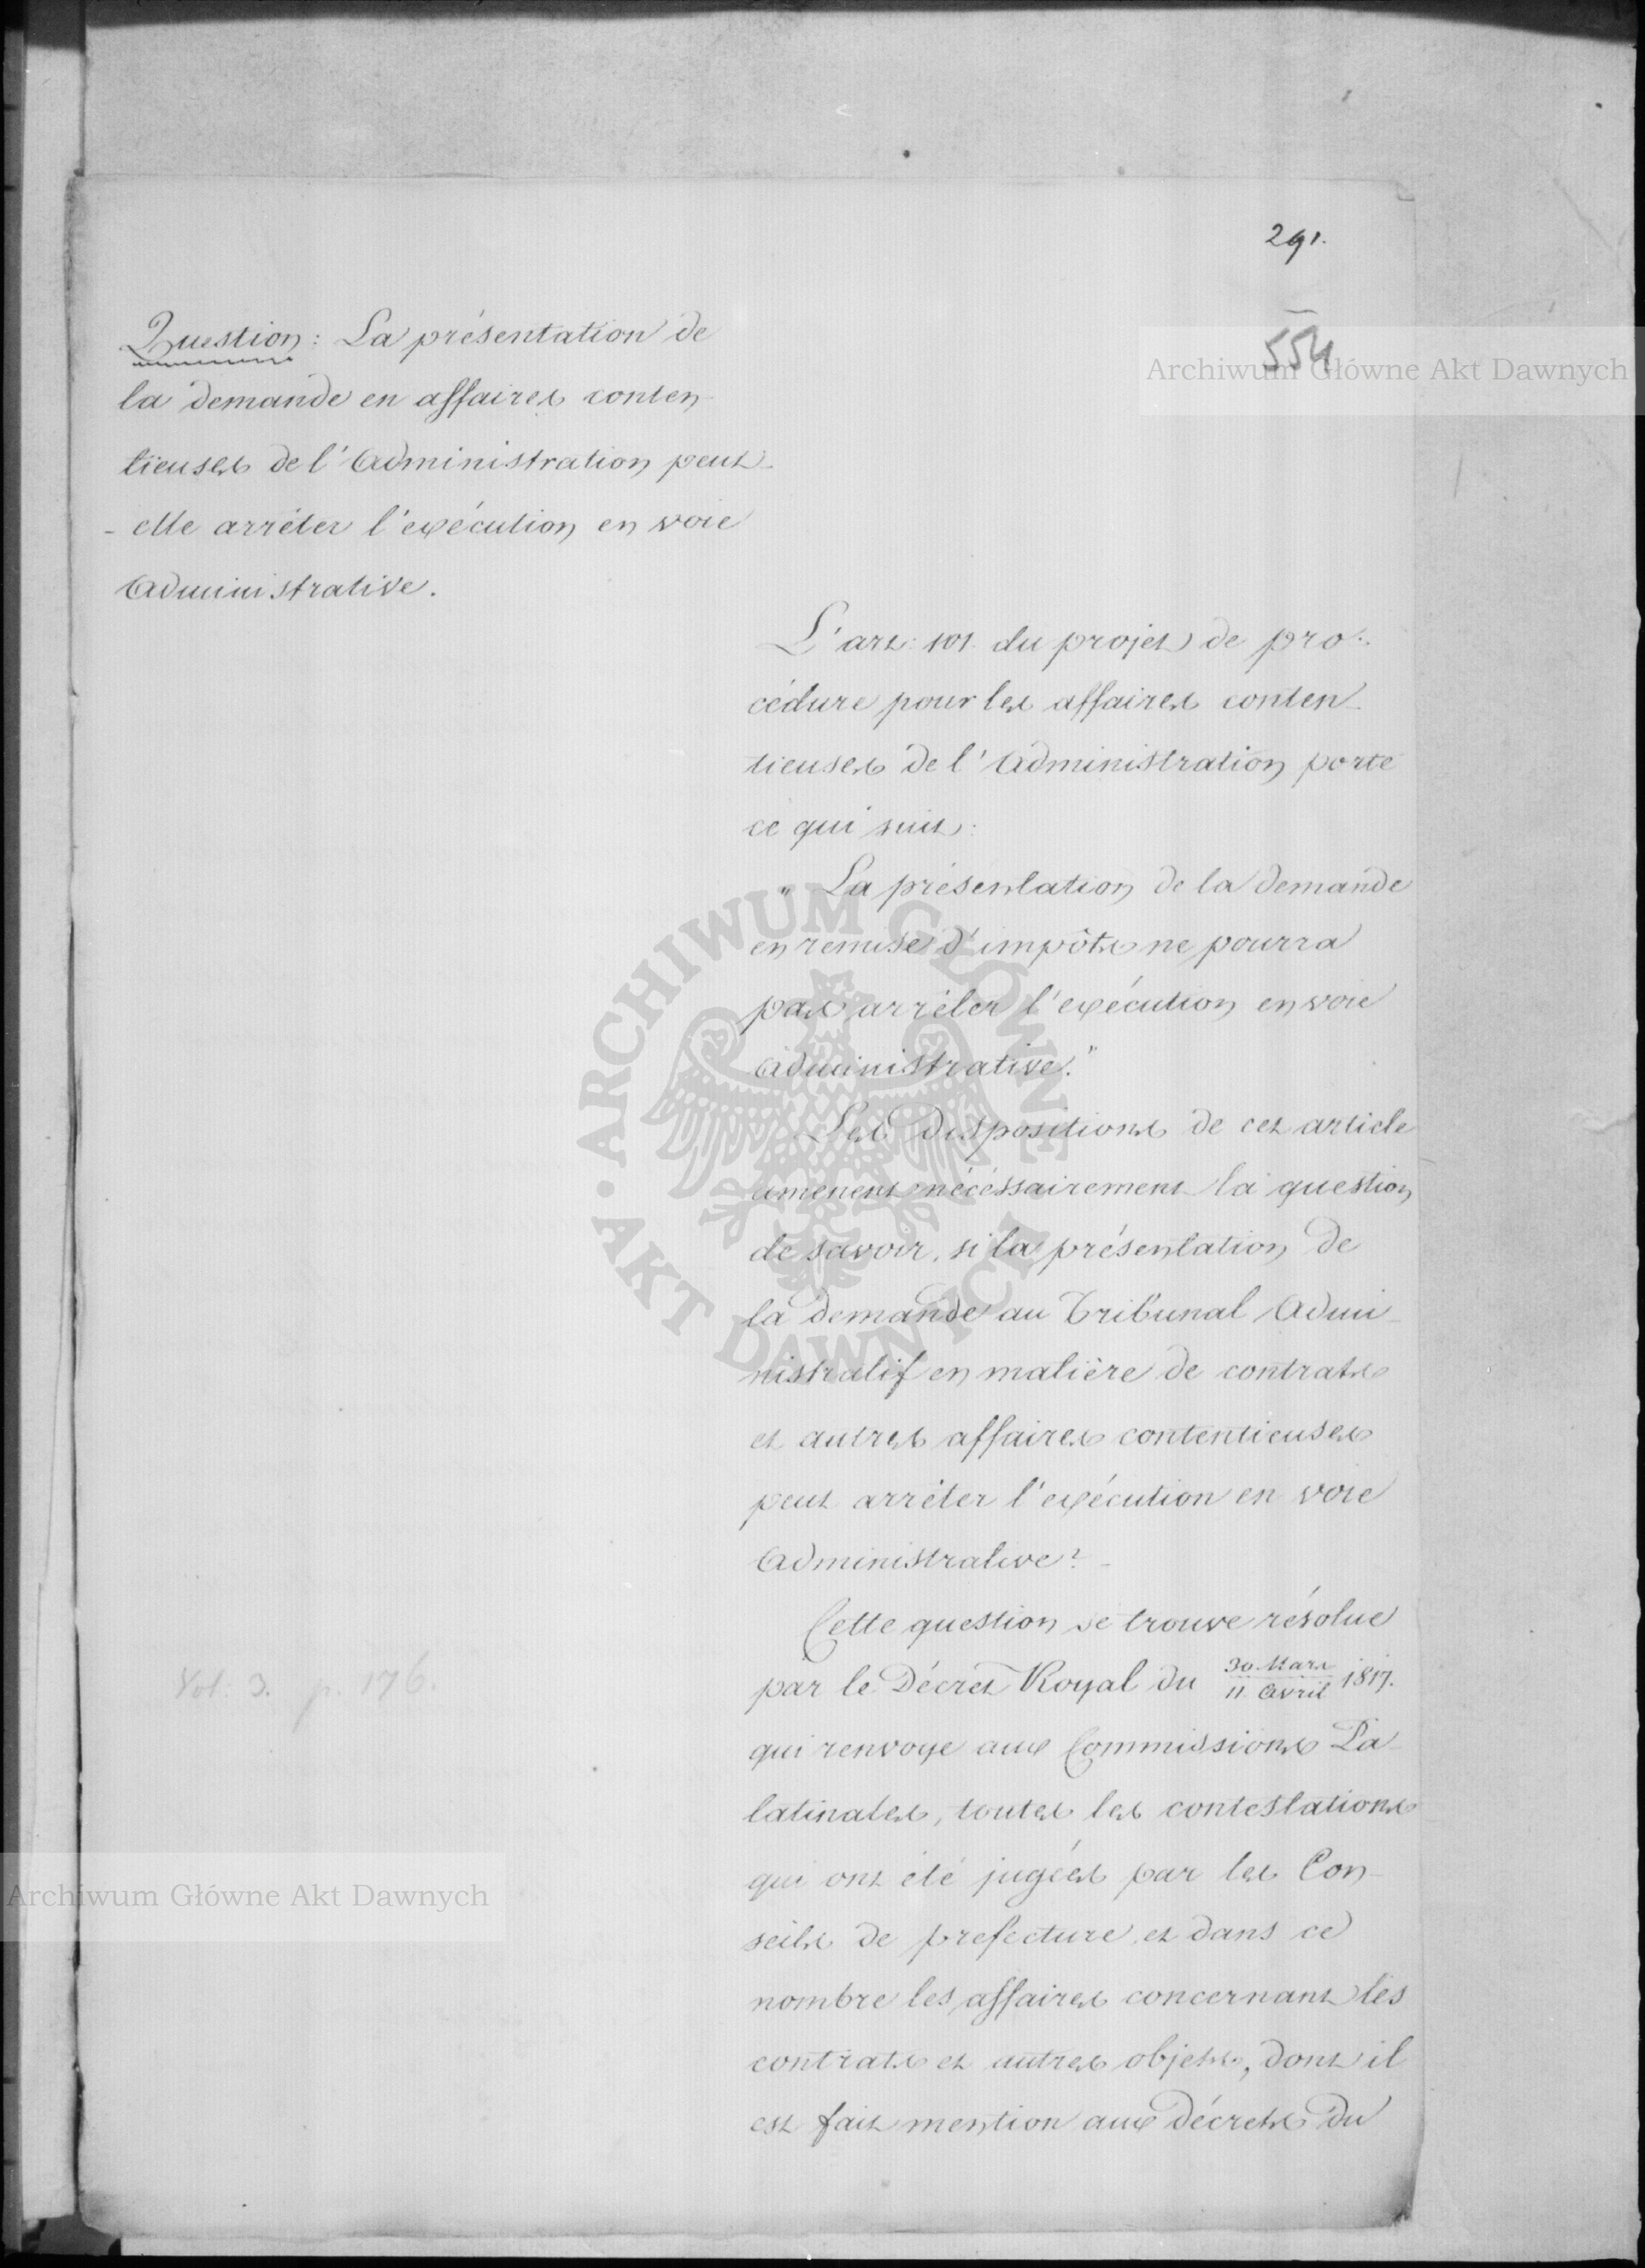 291.
554
Question: La présentation de
la demande en affaires conten-
tieuses de l'Administration peut-
-elle arrêter l'exécution en voie
Administrative.
L'art: 101. du projet de pro-
cédure pour les affaires conten-
tieuses de l'Administration porte
ce qui suit:
"La présentation de la demande
en remise d'impôts ne pourra
pas arrêter l'exécution en voie
administrative."
Les dispositions de cet article
amenent nécéssairement la question
de savoir, si la présentation de
la demande au Tribunal Admi-
nistratif en matière de contrats
et autres affaires contentieuses
peut arrêter l'exécution en voie
Administrative? -
Cette question se trouve résolue
par le Décret Royal du 30 Mars / 11 Avril 1817.
qui renvoye aux Commissions Pa-
latinales, toutes les contestations
qui ont été jugées par les Con-
seils de prefecture, et dans ce
nombre les affaires concernant les
contrats et autres objets, dont il
est fait mention aux décrets du
Vol: 3. p. 176.
Archiwum Główne Akt Dawnych
ARCHIWUM GŁÓWNE · AKT DAWNYCH
Archiwum Główne Akt Dawnych